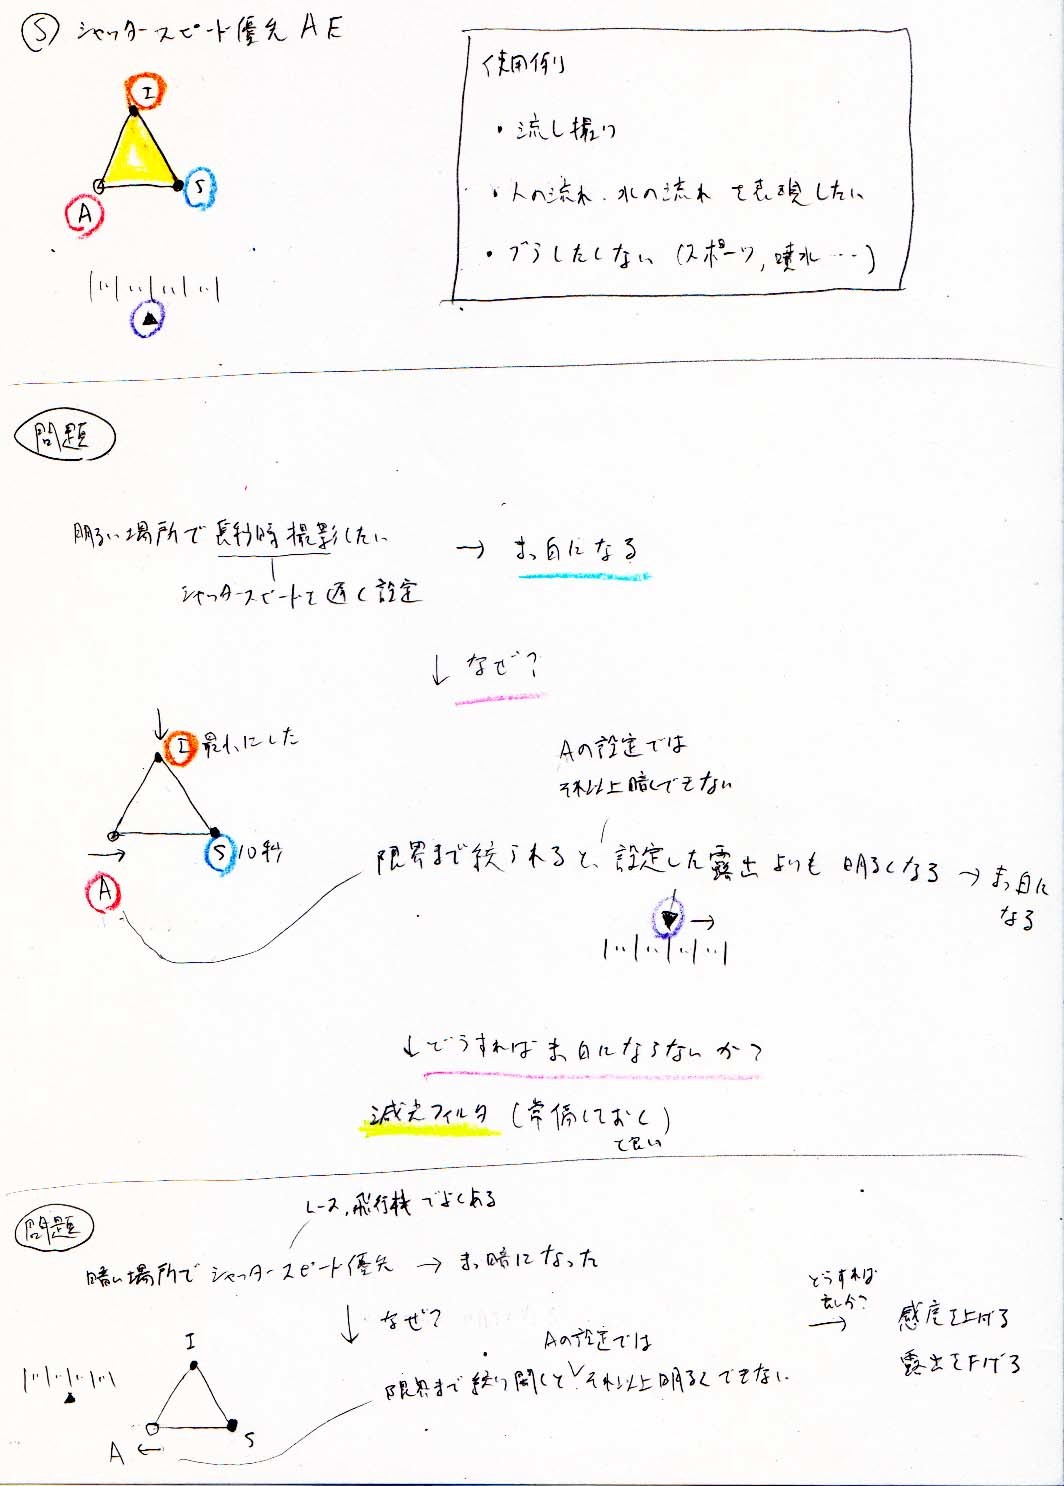 Ⓢ シャッタースピード優先 AE
I
A
S
使用例
・流し撮り
・人の流れ、水の流れ を表現したい
・ブラしたくない (スポーツ, 噴水…)
問題
明るい場所で長秒時撮影したい → まっ白になる
シャッタースピードを遅く設定
↓ なぜ?
I 最小にした
S 10秒
A
Aの設定では
それ以上暗くできない
限界まで絞られると、設定した露出よりも 明るくなる → まっ白に
なる
↓ どうすればまっ白にならないか?
減光フィルタ (常備しておく)
て良い
問題
レース, 飛行機でよくある
暗い場所で シャッタースピード優先 → まっ暗になった
↓ なぜ?
I
A ←
S
Aの設定では
限界まで絞り開くと それ以上明るくできない
どうすれば
良いか?
→
感度を上げる
露出を下げる